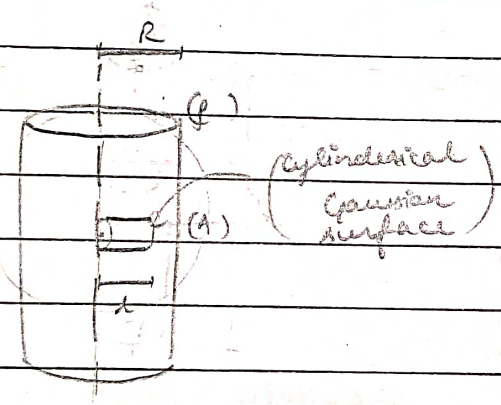 R
(ρ)
(Cylinderical
Gaussian
surface)
(A)
r